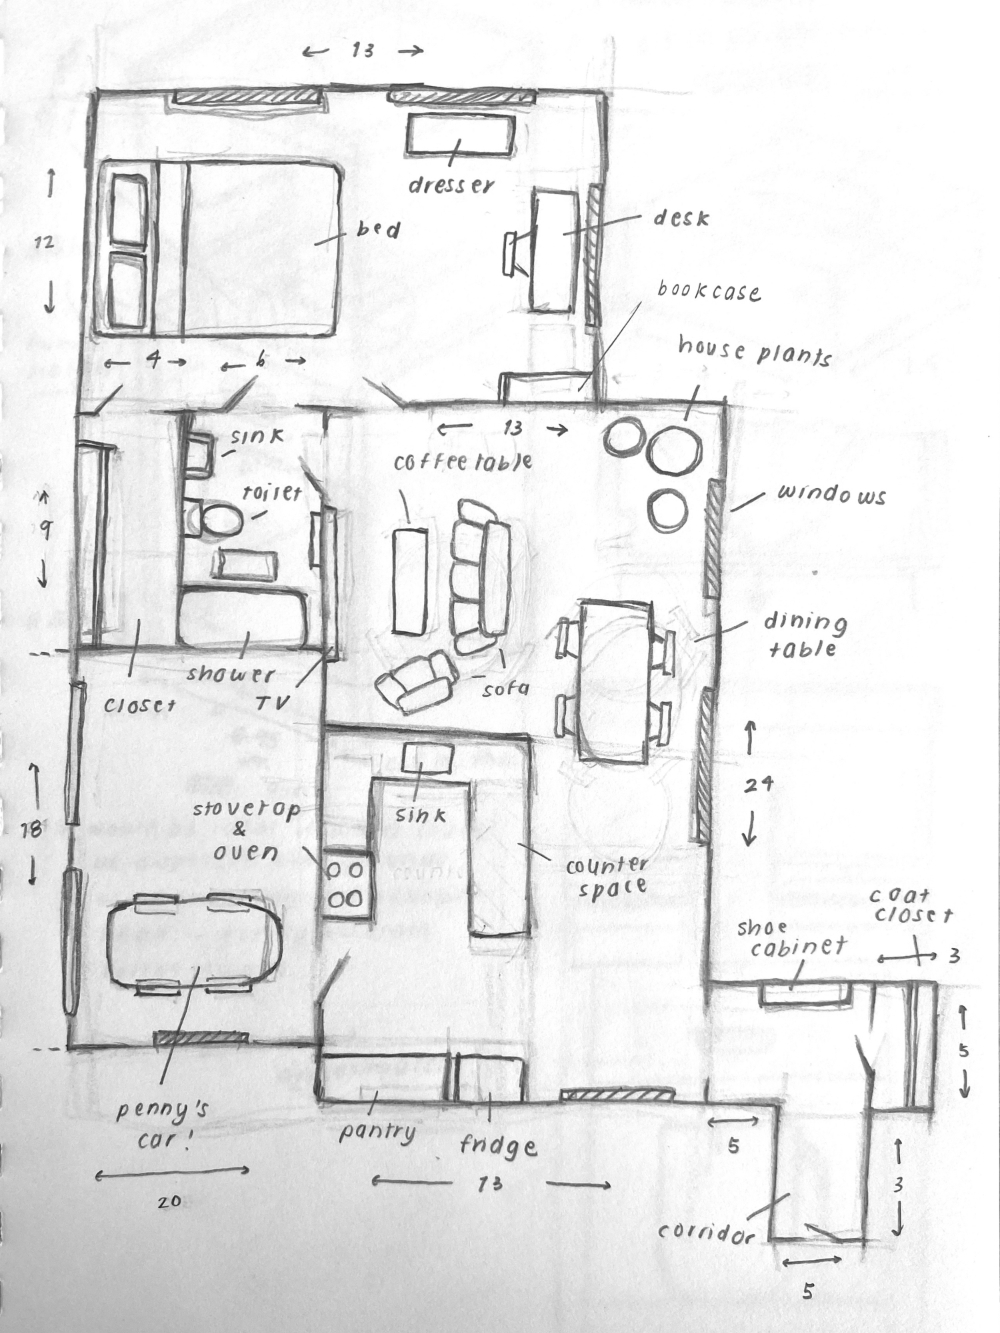 13
dresser
12
bed
desk
bookcase
4
6
house plants
13
sink
coffee table
toilet
windows
9
dining
table
shower
closet
TV
sofa
24
18
stovetop
&
oven
sink
counter
space
coat
closet
shoe
cabinet
3
5
penny's
car!
pantry
fridge
5
3
13
20
corridor
5